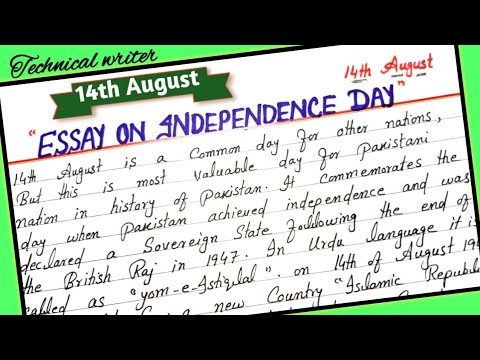 Technical writer
14th August
14th August
"ESSAY ON INDEPENDENCE DAY"
14th August is a common day for other nations,
But this is most valuable day for Pakistani
nation in history of Pakistan. It commemorates the
day when Pakistan achieved independence and was
declared a Sovereign State following the end of
the British Raj in 1947. In Urdu language it is
called as "yom-e-Istiqlal". on 14th of August
a new Country "Islamic Republic